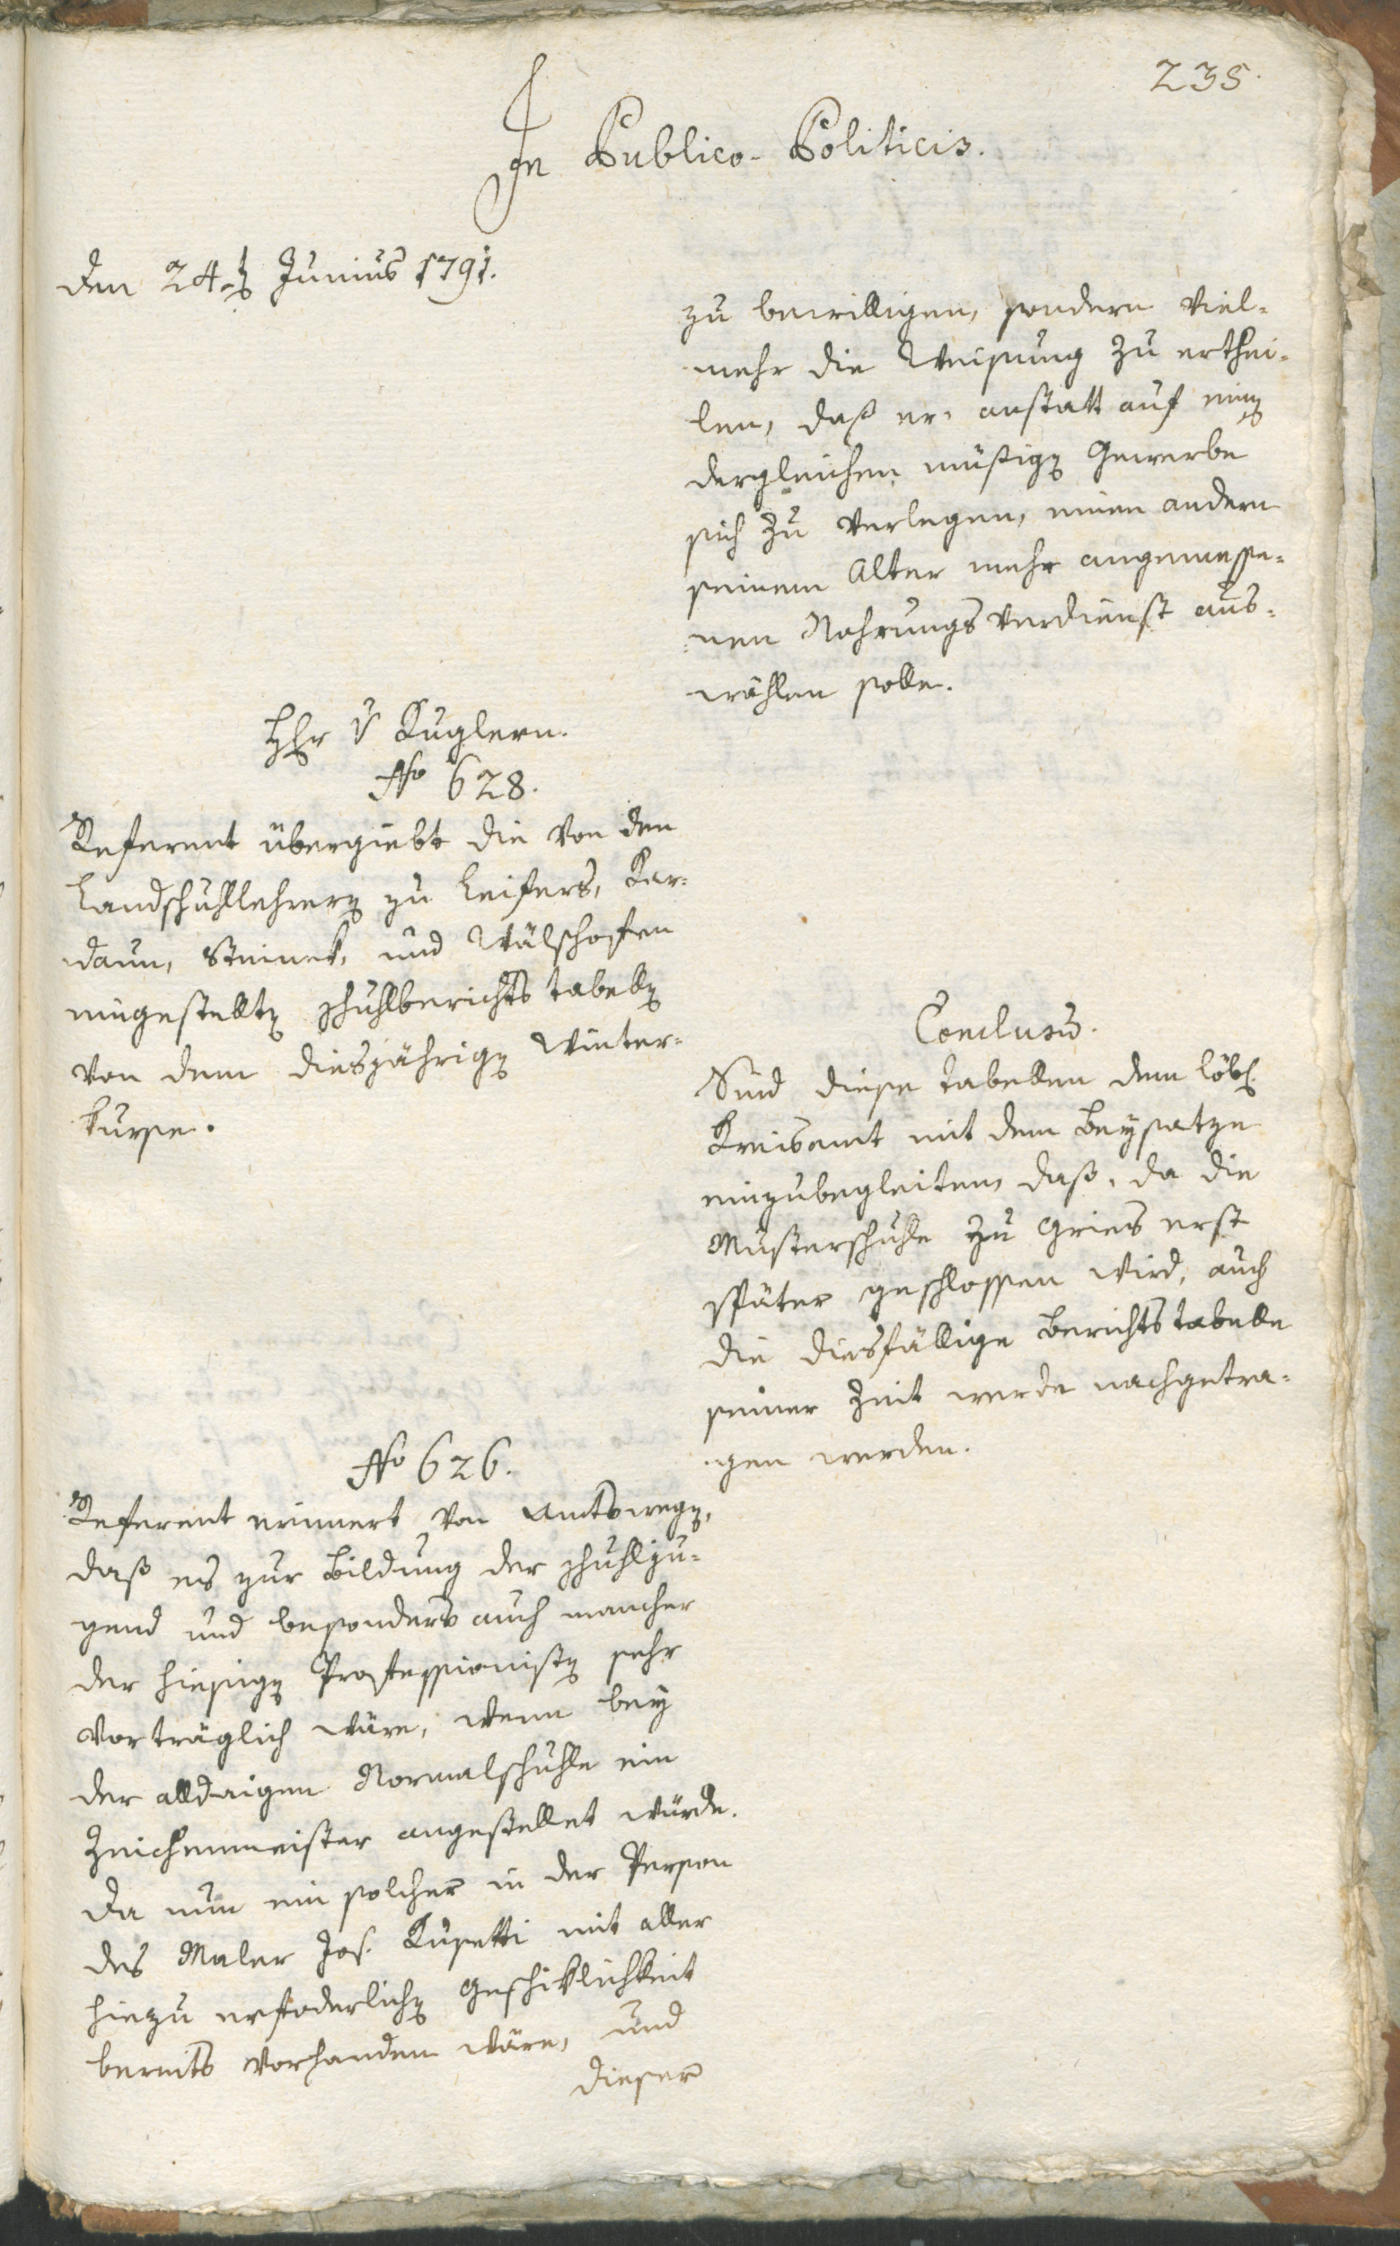 235.
In Publico-Politicis.
den 24t Junius 1791.
zu bewilligen, sondern viel-
mehr die Weisung zu erthei-
len, daß er, anstatt auf ein
dergleichen müßige Gewerbe
sich zu verlegen, einen andern
seinem Alter mehr angemesse-
nen Nahrungsverdienst aus-
wählen solle.
Hr v Kuglern.
No 628.
Referent übergiebt die von den
Landschuhllehrern zu Leifers, Kar-
daun, Steinek, und Wälschofen
eingestellten Schuhlberichts tabellen
von dem diesjährigen Winter-
kurse.
Conclusum.
Sind diese Tabellen dem löbl.
Kreisamt mit dem Beysatze
einzubegleiten, daß, da die
Musterschuhle zu Gries erst
später geschlossen wird, auch
die diesfällige Berichtstabelle
seiner Zeit werde nachgetra-
gen werden.
No 626.
Referent erinnert von Amtswegen,
daß es zur Bildung der Schuhlju-
gend und besonders auch mancher
der hiesigen Professionisten sehr
vorträglich wäre, wenn bey
der alldaigen Normalschuhle ein
Zeichenmeister angestellet würde.
Da nun ein solcher in der Person
des Maler Jos. Kusetti mit aller
hiezu erfoderlichen Geschiklichkeit
bereits vorhanden wäre, und
dieser